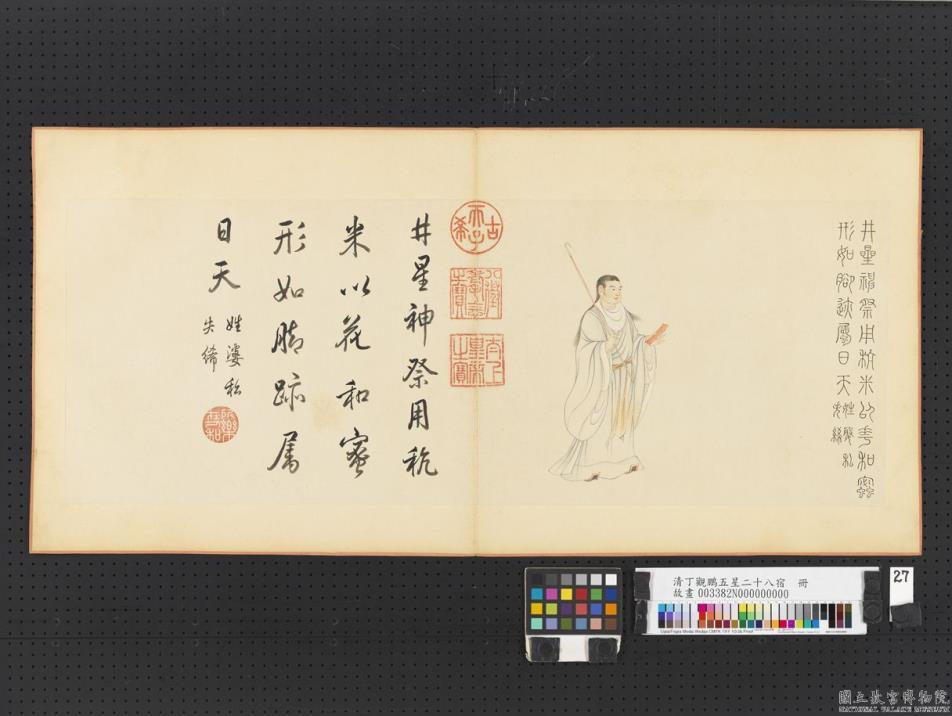 井星神祭用秔米以花和蜜
形如脚迹屬日天姓婆私
失絺
古希天子
八徵耄念之寶
太上皇帝之寶
井星神祭用秔
米以花和蜜
形如脚跡属
日天
姓婆私
失絺
27
清丁觀鵬五星二十八宿 冊
故畫 003382N000000000
國立故宮博物院
NATIONAL PALACE MUSEUM